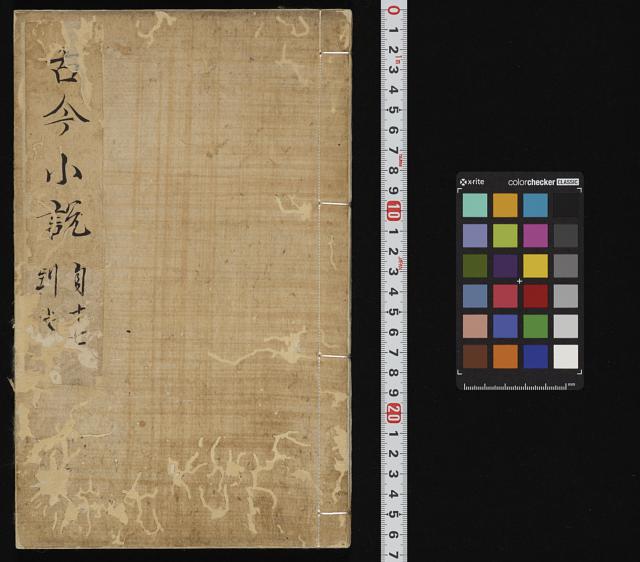 古今小説
自十七
到
0
1
2
3
4
5
6
7
8
9
10
1
2
3
4
5
6
7
8
9
20
1
2
3
4
5
6
7
x-rite
colorchecker CLASSIC
mm